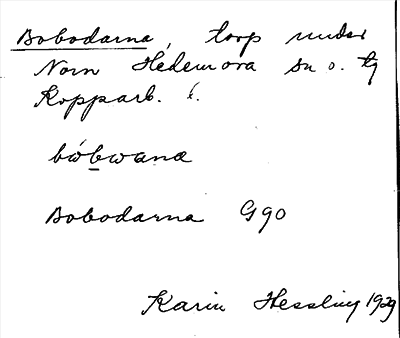 Bobodarna, torp under
Norn Hedemora sn o. tg
Kopparb. l.
bẃbwana
Bobodarna G90
Karin Hessling 1929